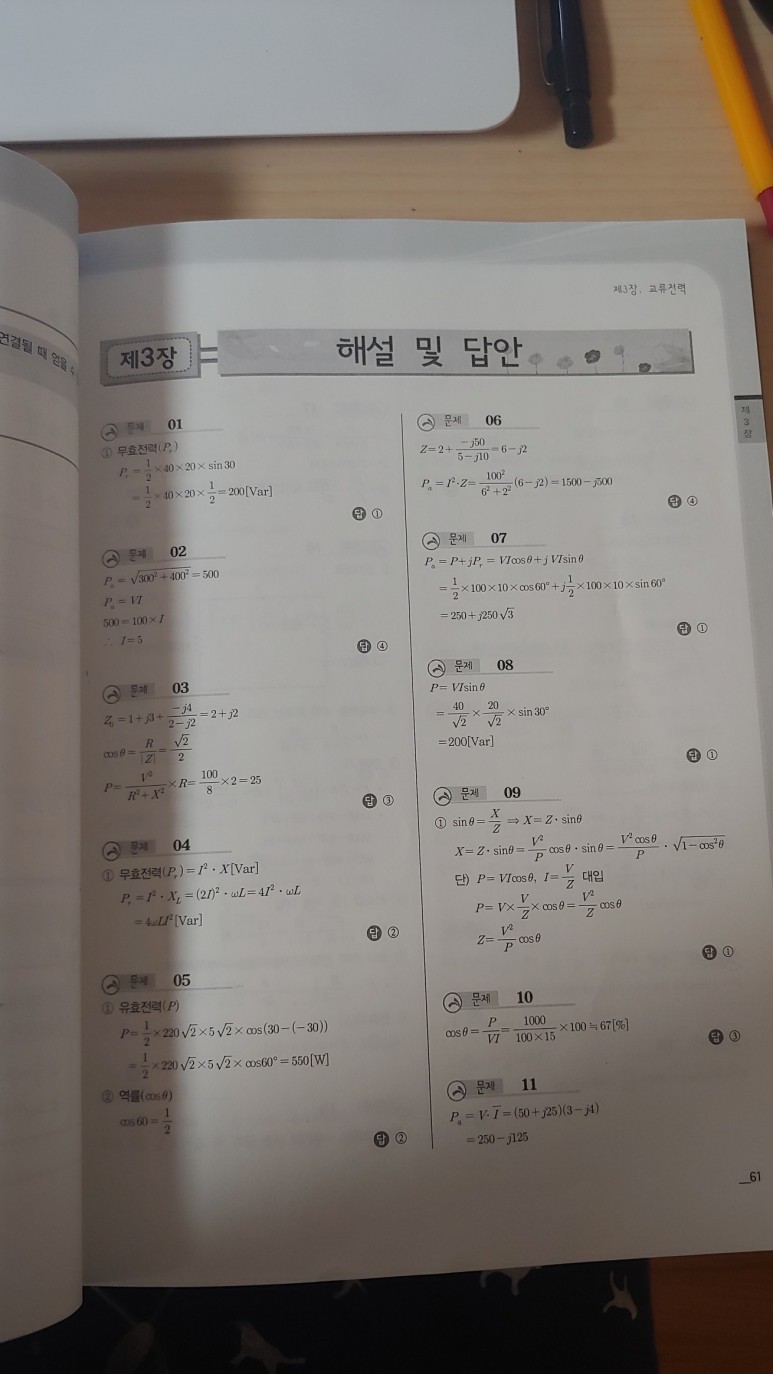 연결될 때 얻을 수
제3장. 교류전력
제3장
해설 및 답안
제3장
문제 01
① 무효전력(Pᵣ)
Pᵣ = 1/2 × 40 × 20 × sin 30
= 1/2 × 40 × 20 × 1/2 = 200[Var]
답 ①
문제 02
Pₐ = √(300² + 400²) = 500
Pₐ = VI
500 = 100 × I
∴ I = 5
답 ④
문제 03
Z₀ = 1 + j3 + (−j4)/(2 − j2) = 2 + j2
cos θ = R/|Z| = √2/2
P = V²/(R² + X²) × R = 100/8 × 2 = 25
답 ③
문제 04
① 무효전력(Pᵣ) = I² · X[Var]
Pᵣ = I² · X_L = (2I)² · ωL = 4I² · ωL
= 4ωLI²[Var]
답 ②
문제 05
① 유효전력(P)
P = 1/2 × 220√2 × 5√2 × cos(30 − (−30))
= 1/2 × 220√2 × 5√2 × cos60° = 550[W]
② 역률(cos θ)
cos 60 = 1/2
답 ②
문제 06
Z = 2 + (−j50)/(5 − j10) = 6 − j2
Pₐ = I² · Z = 100²/(6² + 2²) (6 − j2) = 1500 − j500
답 ④
문제 07
Pₐ = P + jPᵣ = VI cos θ + j VI sin θ
= 1/2 × 100 × 10 × cos 60° + j 1/2 × 100 × 10 × sin 60°
= 250 + j250√3
답 ①
문제 08
P = VI sin θ
= 40/√2 × 20/√2 × sin 30°
= 200[Var]
답 ①
문제 09
① sin θ = X/Z ⇒ X = Z · sin θ
X = Z · sin θ = V²/P cos θ · sin θ = V² cos θ/P · √(1 − cos²θ)
단) P = VI cos θ, I = V/Z 대입
P = V × V/Z × cos θ = V²/Z cos θ
Z = V²/P cos θ
답 ①
문제 10
cos θ = P/VI = 1000/(100 × 15) × 100 ≒ 67[%]
답 ③
문제 11
Pₐ = V · I̅ = (50 + j25)(3 − j4)
= 250 − j125
61